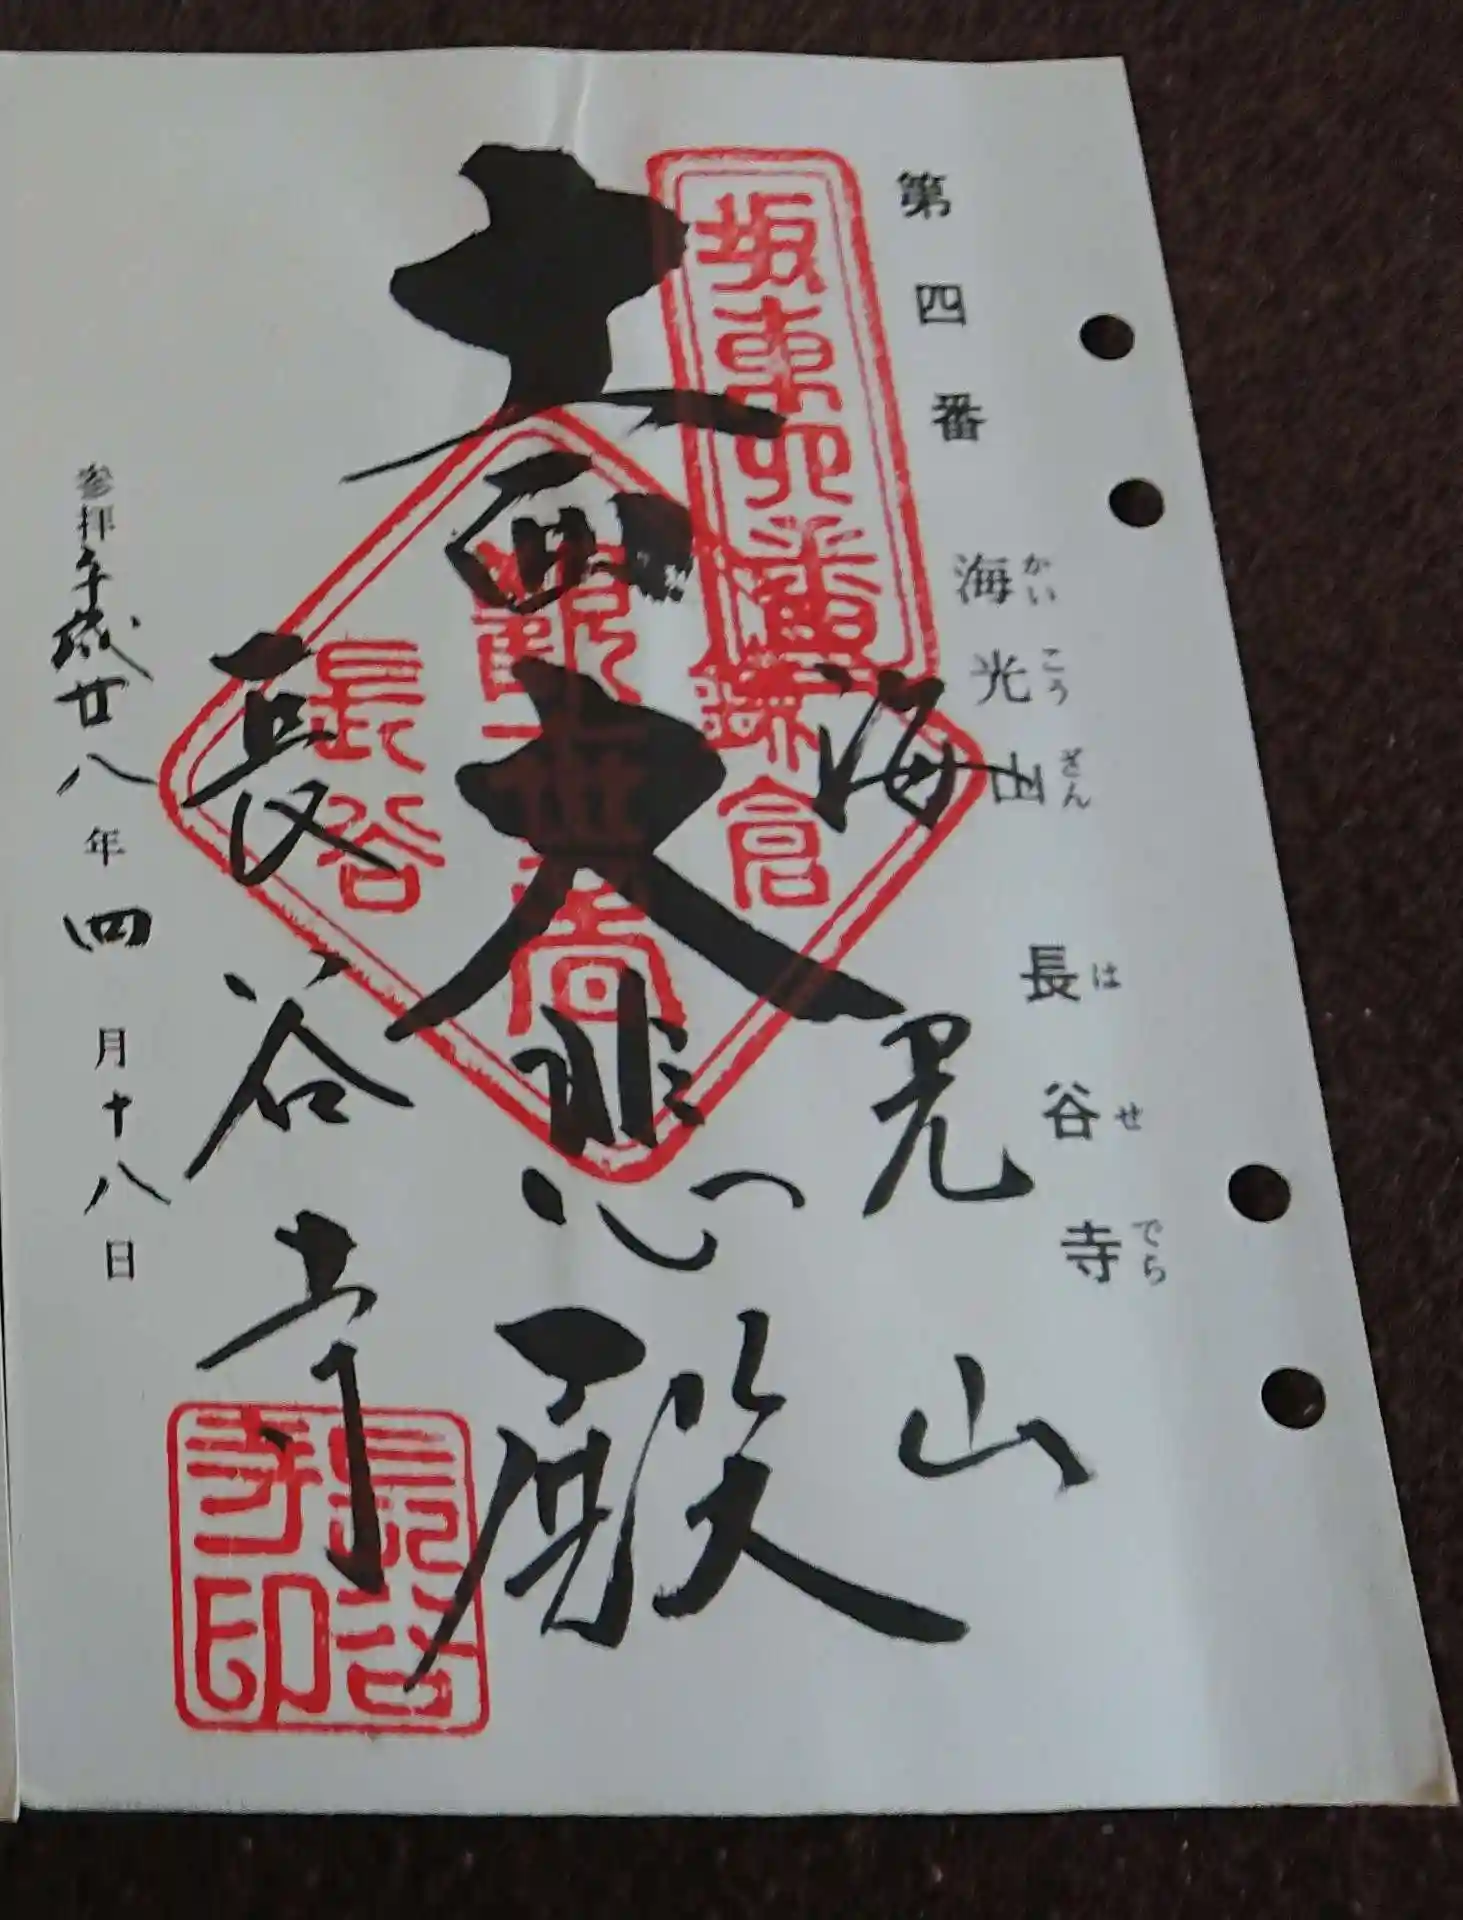 第四番 海光山 長谷寺
かいこうざん はせでら
坂東四番
海光山
鎌倉
十一面大悲殿
長谷
長谷寺
長谷寺印
参拝平成廿八年四月十八日